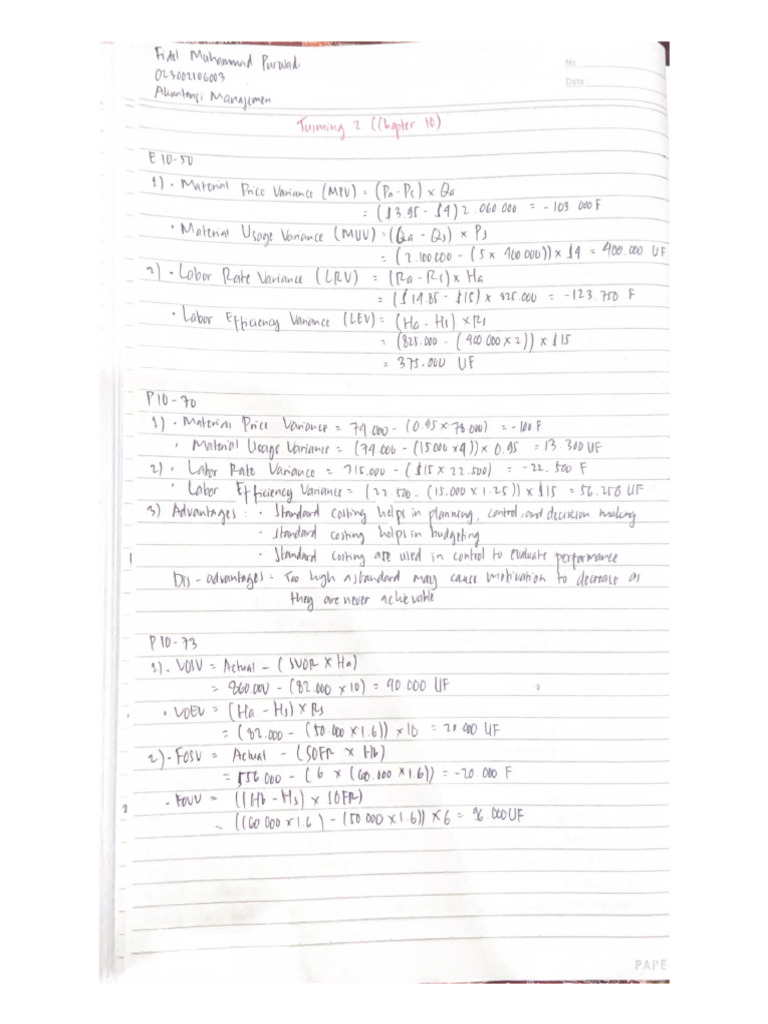 Fidel Muhammad Purwadi
023002106003
Akuntansi Manajemen
No.
Date :
Turming 2 (Chapter 10)
E 10-50
1) • Material Price Variance (MPV) = (Pa - Ps) × Qa
= ($3.95 - $4) 2.060.000 = -103 000 F
• Material Usage Variance (MUV) = (Qa - Qs) × Ps
= (2.100.000 - (5 × 400 000)) × $4 = 400.000 UF
2) • Labor Rate Variance (LRV) = (Ra - Rs) × Ha
= ($14.85 - $15) × 825.000 = -123.750 F
• Labor Efficiency Variance (LEV) = (Ha - Hs) × Rs
= (825.000 - (400 000 × 2)) × $15
= 375.000 UF
P10-70
1) • Material Price Variance = 74 000 - (0.95 × 78 000) = -100 F
• Material Usage Variance = (74.000 - (15000 × 4)) × 0.95 = 13.300 UF
2) • Labor Rate Variance = 315.000 - ($15 × 22.500) = -22.500 F
• Labor Efficiency Variance = (22 500 - (15.000 × 1.25)) × $15 = 56.250 UF
3) Advantages : • Standard costing helps in planning, control, and decision making
• Standard costing helps in budgeting
• Standard costing are used in control to evaluate performance
Dis - advantages = Too high a standard may cause motivation to decrease as
they are never achievable
P 10-73
1) • VOSV = Actual - (SVOR × Ha)
= 860.000 - (82.000 × 10) = 40 000 UF
• VOEV = (Ha - Hs) × Rs
= (82.000 - (50.000 × 1.6)) × 10 = 20.000 UF
2) • FOSV = Actual - (SOFR × Hb)
= 556 000 - (6 × (60.000 × 1.6)) = -20.000 F
• FOVV = ((Hb - Hs) × SOFR)
= ((60 000 × 1.6) - (50 000 × 1.6)) × 6 = 96 000 UF
PAPE